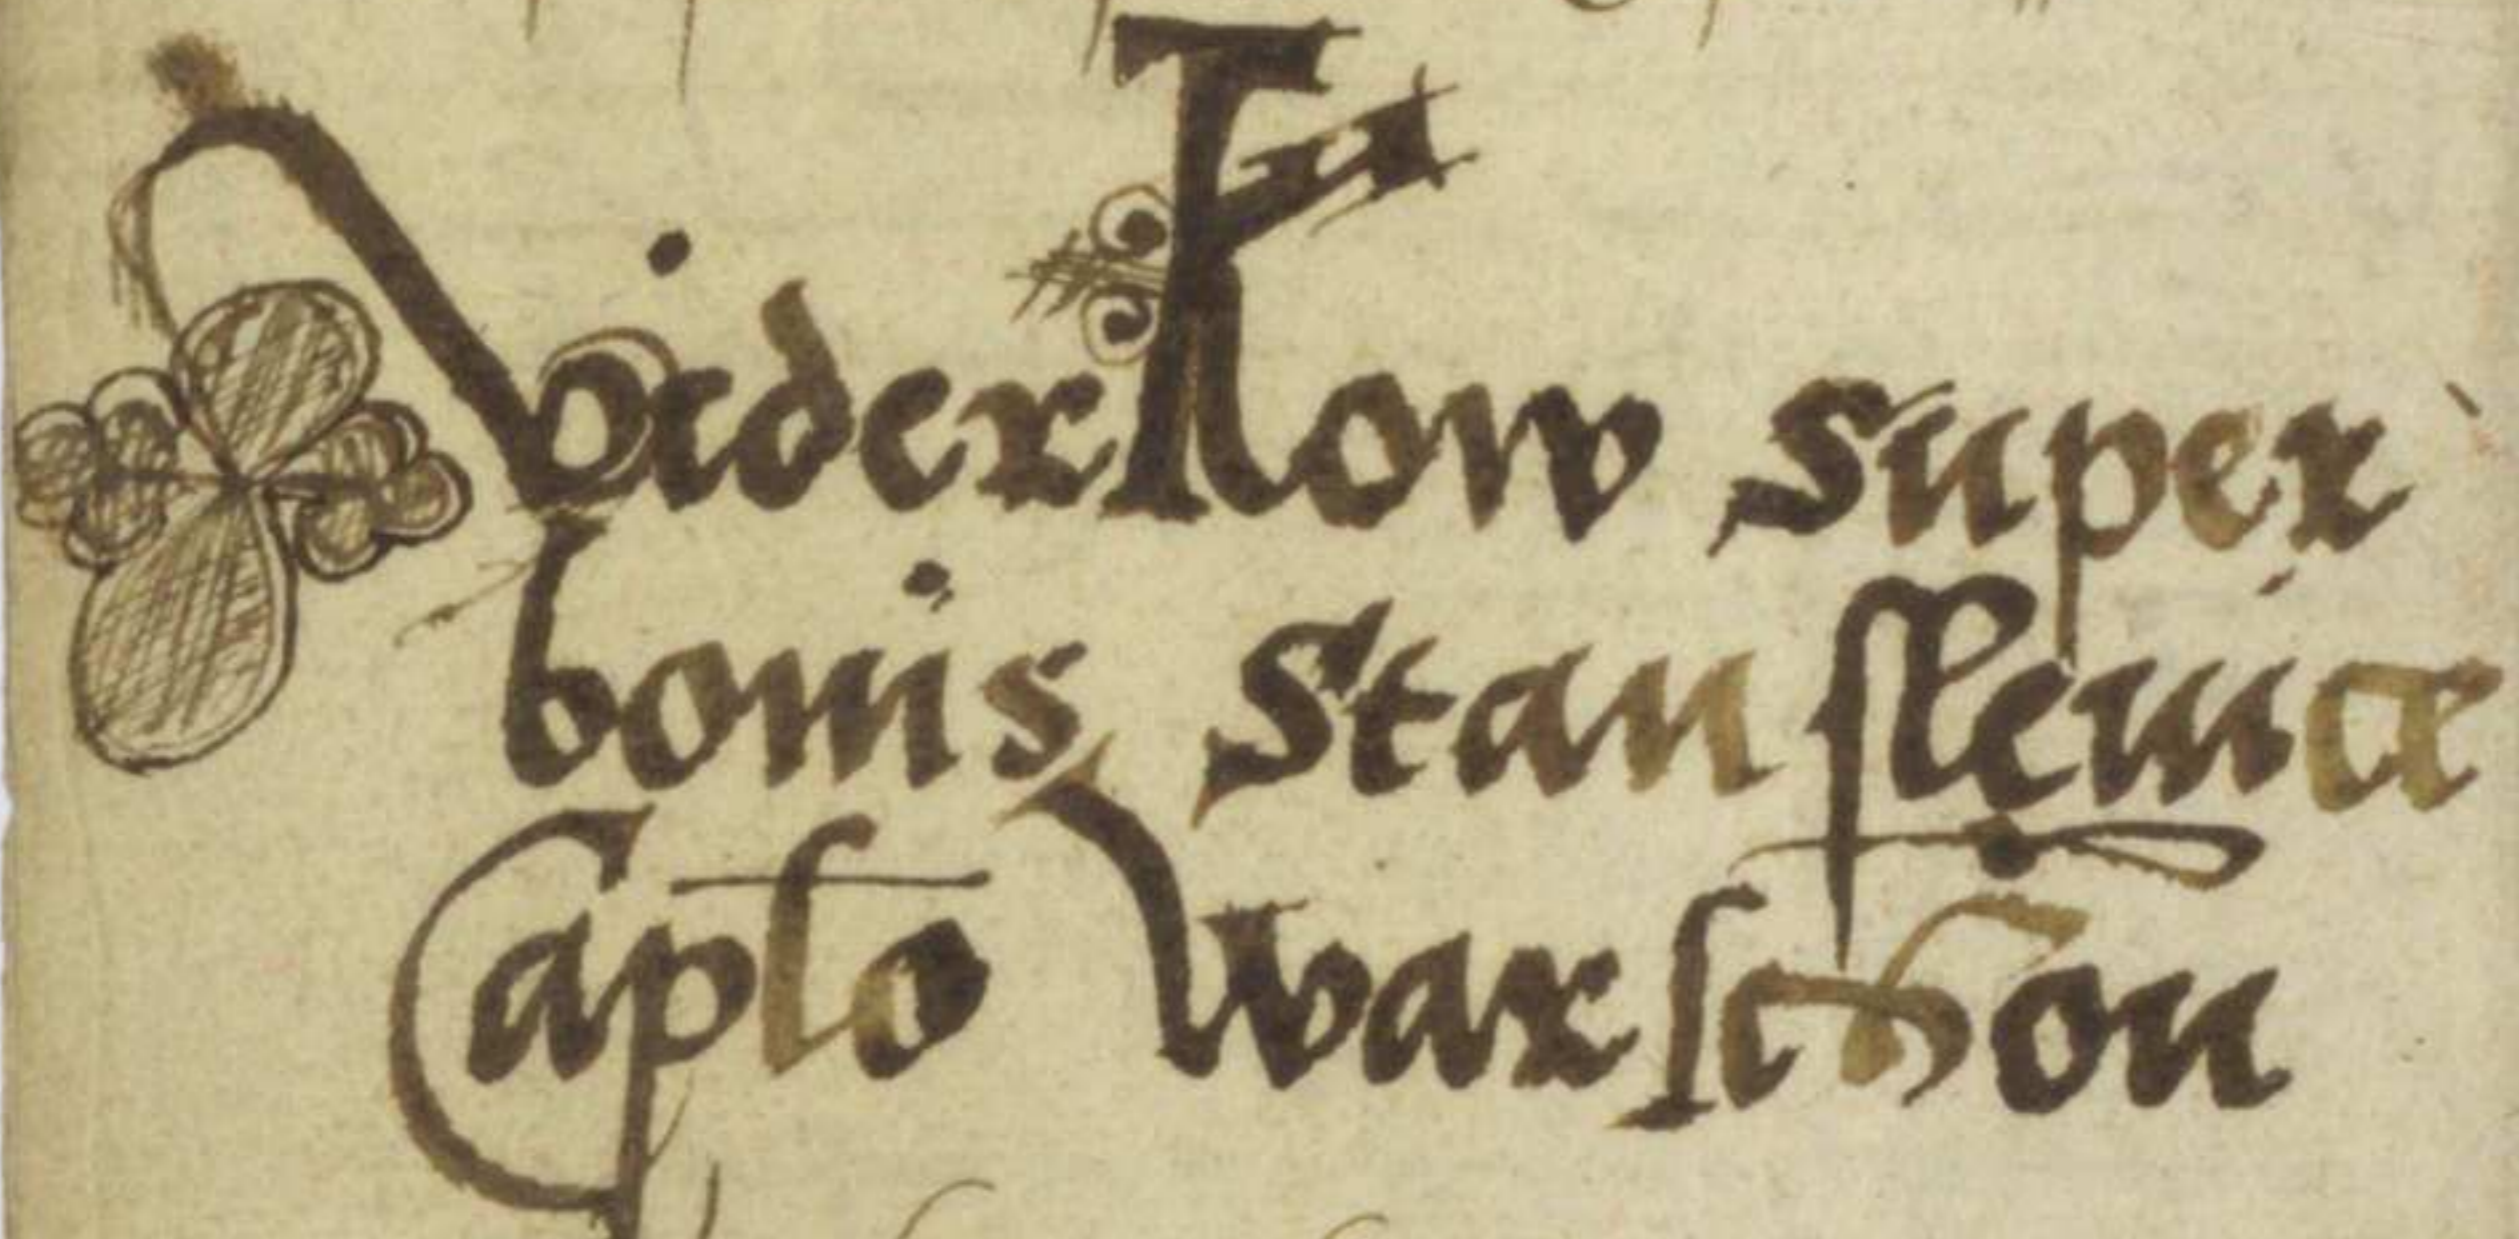 Viderkow super
bonis Stanslewice
Capto Warschou